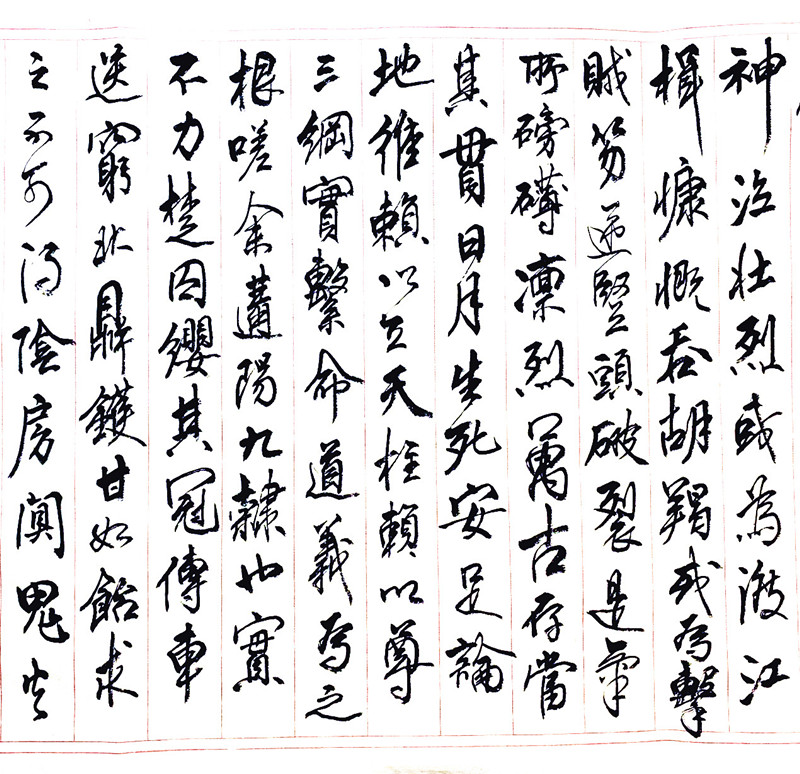 神泣壮烈或為渡江
楫慷慨吞胡羯或為擊
賊笏逆豎頭破裂是氣
所磅礴凛烈萬古存當
其貫日月生死安足論
地維賴以立天柱賴以尊
三綱實繫命道義為之
根嗟余遘陽九隸也實
不力楚囚纓其冠傳車
送窮北鼎鑊甘如飴求
之不可得陰房闃鬼火